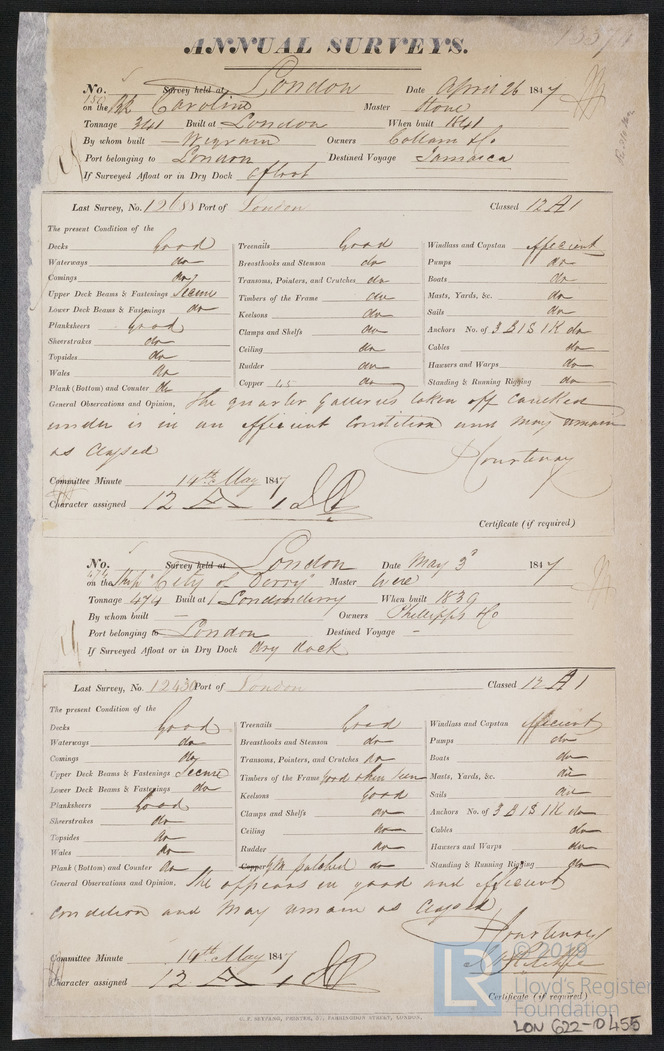 ANNUAL SURVEYS.
No. Survey held at London Date April 26 1847
on the Bk Caroline Master Stone
Tonnage 341 Built at London When built 1841
By whom built Wigram Owners Collam & Co
Port belonging to London Destined Voyage Jamaica
If Surveyed Afloat or in Dry Dock afloat
Last Survey, No. 12688 Port of London Classed 12 A 1
The present Condition of the
Decks Good
Waterways do
Comings do
Upper Deck Beams & Fastenings Secure
Lower Deck Beams & Fastenings do
Planksheers Good
Sheerstrakes do
Topsides do
Wales do
Plank (Bottom) and Counter do
Treenails Good
Breasthooks and Stemson do
Transoms, Pointers, and Crutches do
Timbers of the Frame do
Keelsons do
Clamps and Shelfs do
Ceiling do
Rudder do
Copper 45 do
Windlass and Capstan efficient
Pumps do
Boats do
Masts, Yards, &c. do
Sails do
Anchors No. of 3 B 1 S 1 K do
Cables do
Hawsers and Warps do
Standing & Running Rigging do
General Observations and Opinion, The quarter Galleries taken off caulked
under is in an efficient Condition and may remain
as Classed
Courtenay
Committee Minute 14th May 1847
Character assigned 12 A 1
Certificate (if required)
No. Survey held at London Date May 3d 1847
on the Ship "City of Derry" Master Were
Tonnage 474 Built at Londonderry When built 1839
By whom built — Owners Phillipps & Co
Port belonging to London Destined Voyage -
If Surveyed Afloat or in Dry Dock dry dock
Last Survey, No. 12430 Port of London Classed 12 A 1
The present Condition of the
Decks Good
Waterways do
Comings do
Upper Deck Beams & Fastenings Secure
Lower Deck Beams & Fastenings do
Planksheers Good
Sheerstrakes do
Topsides do
Wales do
Plank (Bottom) and Counter do
Treenails Good
Breasthooks and Stemson do
Transoms, Pointers, and Crutches do
Timbers of the Frame Good when seen
Keelsons Good
Clamps and Shelfs do
Ceiling do
Rudder do
Copper YM patched do
Windlass and Capstan efficient
Pumps do
Boats do
Masts, Yards, &c. do
Sails do
Anchors No. of 3 B 1 S 1 K do
Cables do
Hawsers and Warps do
Standing & Running Rigging do
General Observations and Opinion, She appears in good and efficient
condition and may remain as Classed
Courtenay
Committee Minute 14th May 1847
Character assigned 12 A 1
Certificate (if required)
LR © 2019 Lloyd's Register Foundation
LON 622-0455